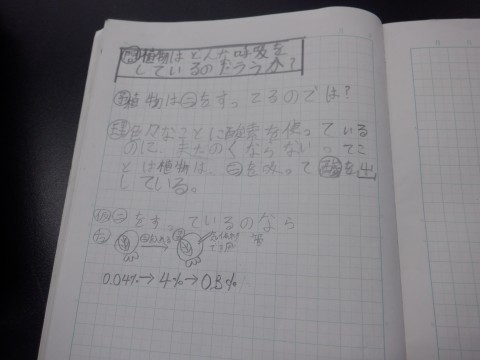 問 植物はどんな呼吸を
しているのだろうか?
予 植物は㊁をすってるのでは?
色々なことに酸素を使っている
のに、まだのくならないってこ
とは植物は、㊁を吸って酸を出
している。
仮 ㊁をすっているのなら
0.04%→4%→0.8%